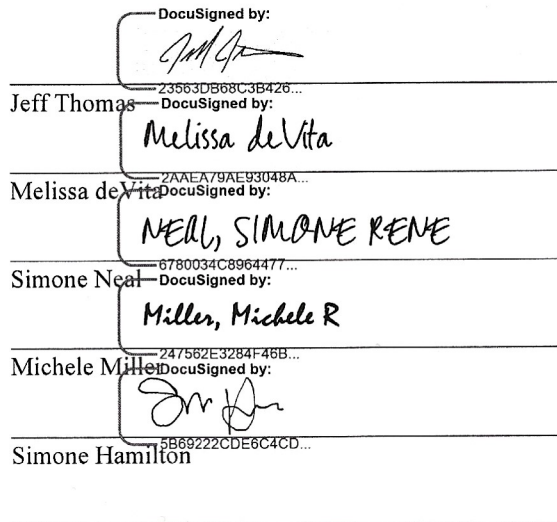 DocuSigned by:
23563DB68C3B426...
Jeff Thomas
DocuSigned by:
Melissa deVita
2AAEA79AE93048A...
Melissa deVita
DocuSigned by:
NEAL, SIMONE RENE
6780034C8964477...
Simone Neal
DocuSigned by:
Miller, Michele R
247562E3284F46B...
Michele Miller
DocuSigned by:
5B69222CDE6C4CD...
Simone Hamilton